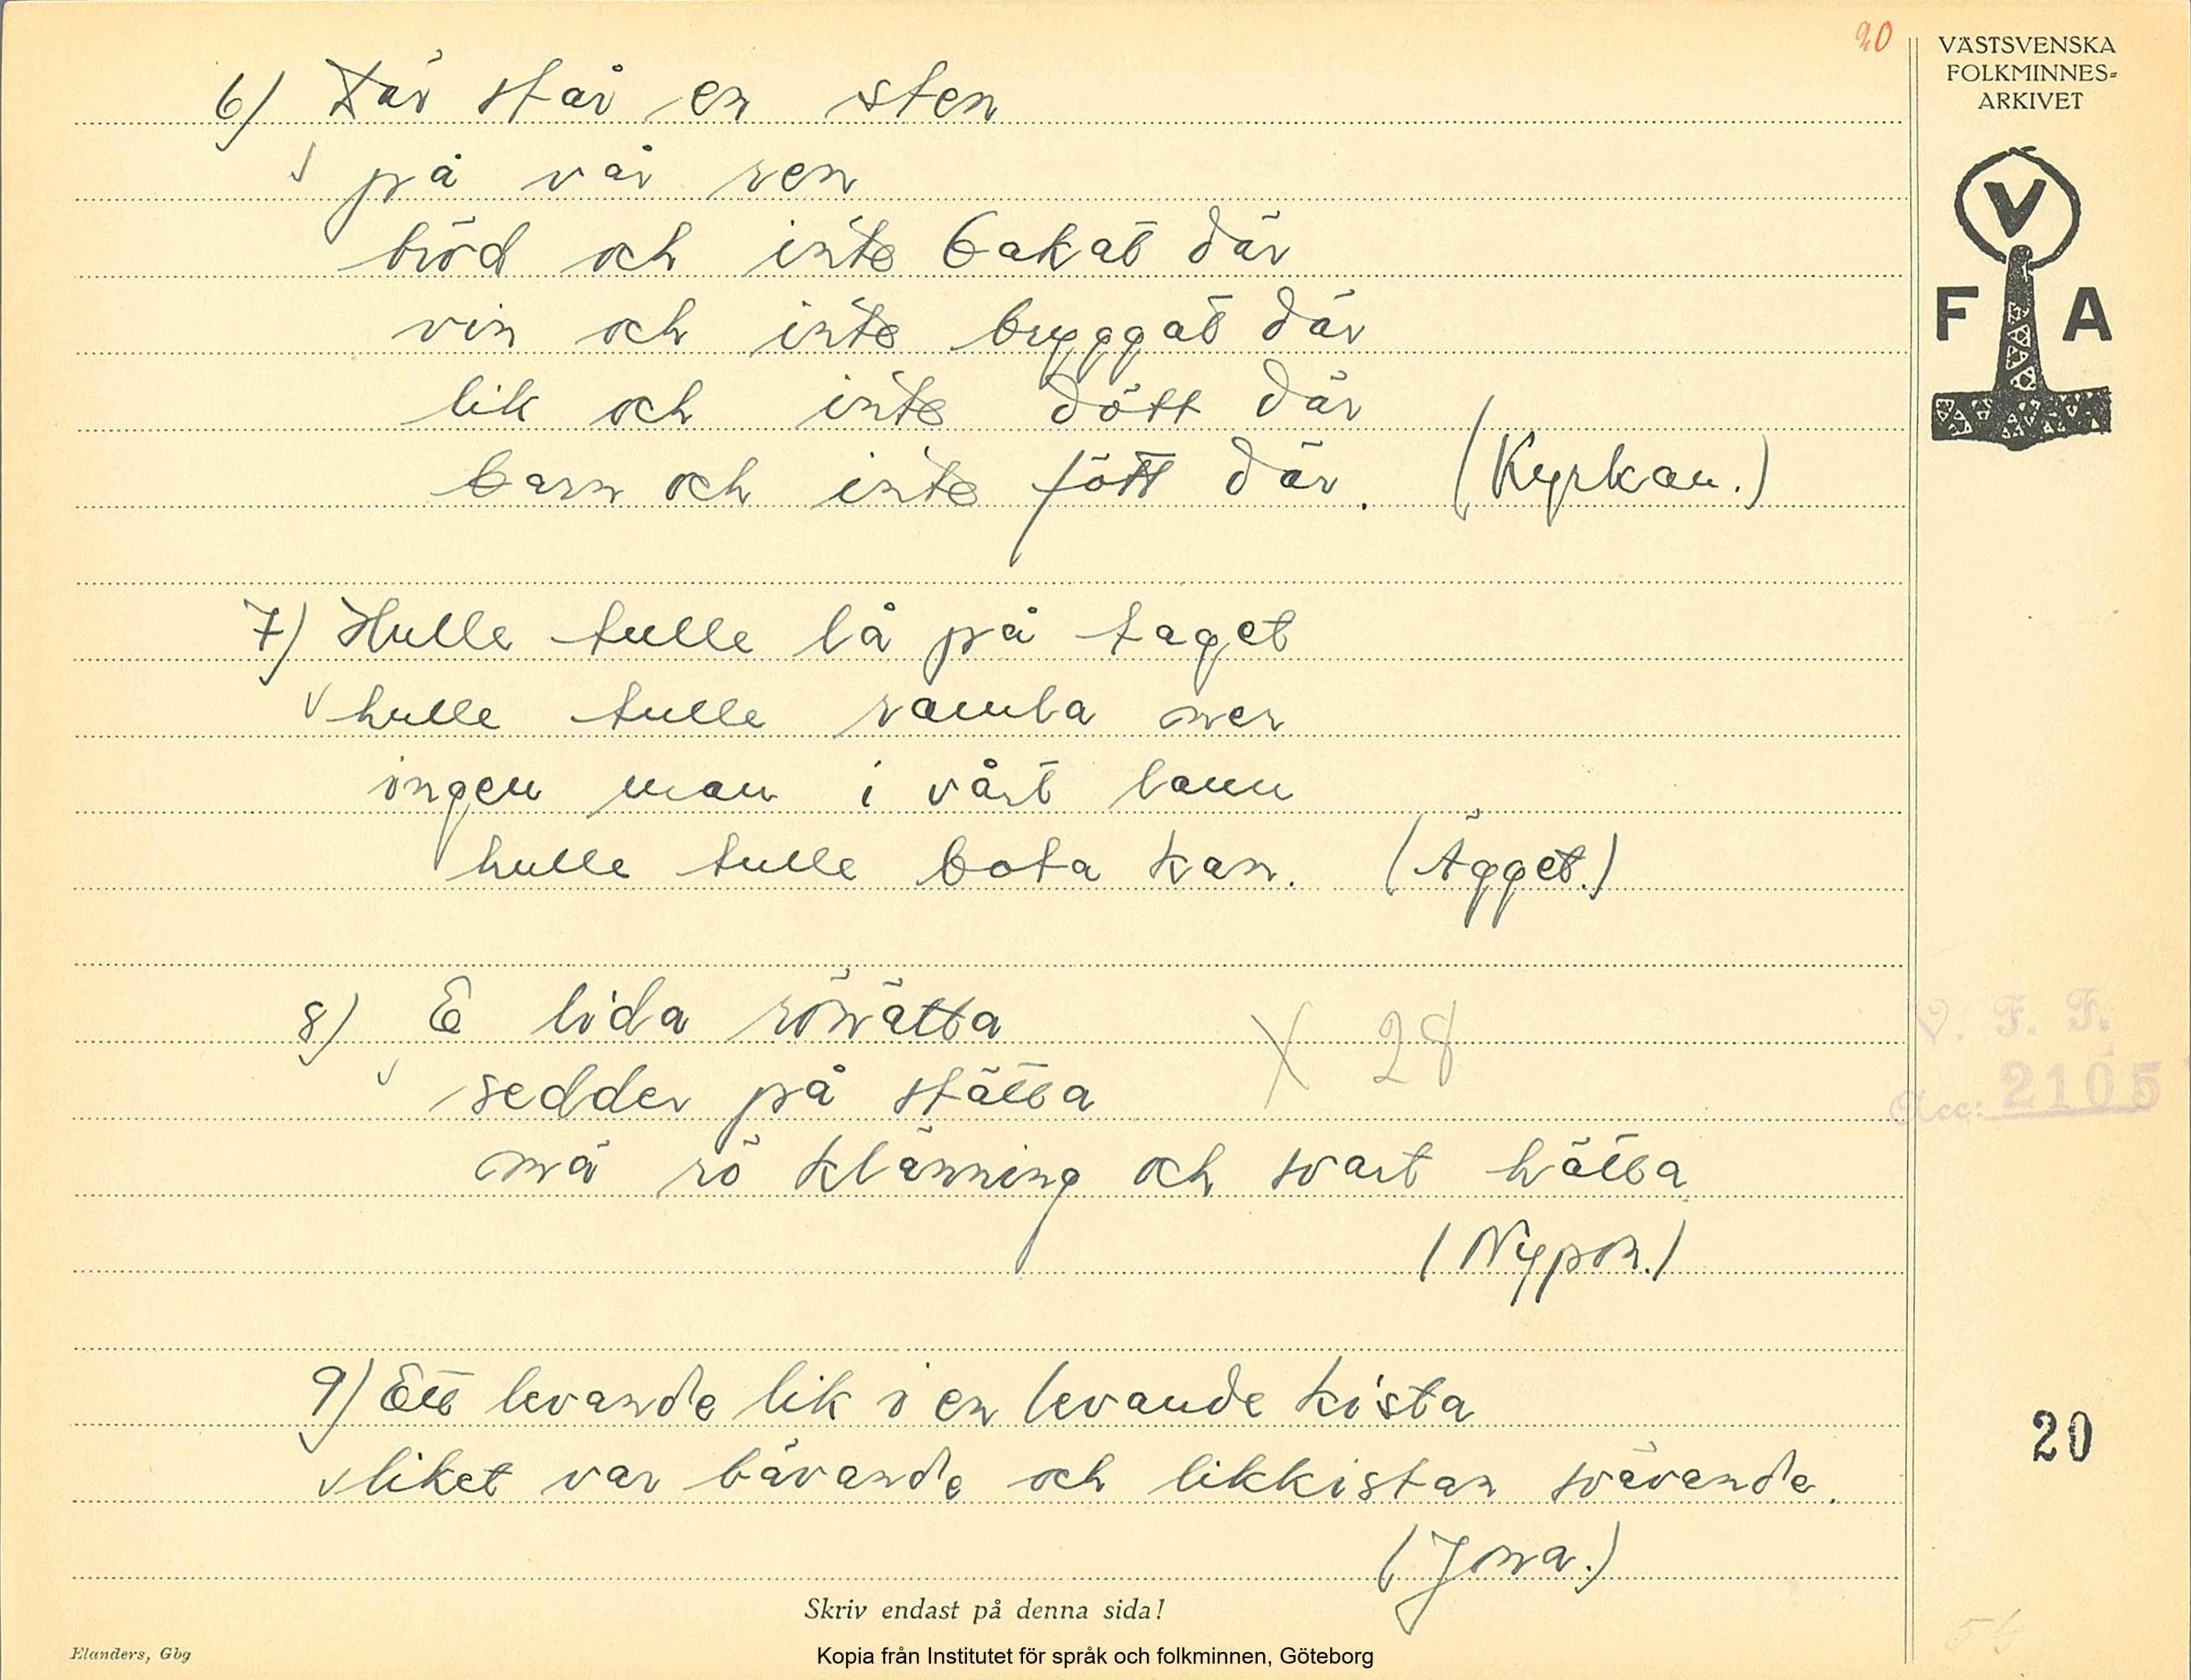 20
VÄSTSVENSKA
FOLKMINNES-
ARKIVET
V
F A
6) Där står en sten
på vår ren
bröd och inte bakat där
vin och inte bryggat där
lik och inte dött där
barn och inte fött där. (Kyrkan.)
7) Hulle tulle lå på taget
hulle tulle ramla ner
ingen man i vårt lann
hulle tulle bota kan. (Ägget.)
8) E lida
sedder på stätta X 28
mä rö klänning och svart hätta
(Nypon.)
V. F. F.
Acc: 2105
9) Ett levande lik i en levande kista
liket var bävande och likkistan svävande.
(Jona.)
20
Skriv endast på denna sida!
Elanders, Gbg
Kopia från Institutet för språk och folkminnen, Göteborg